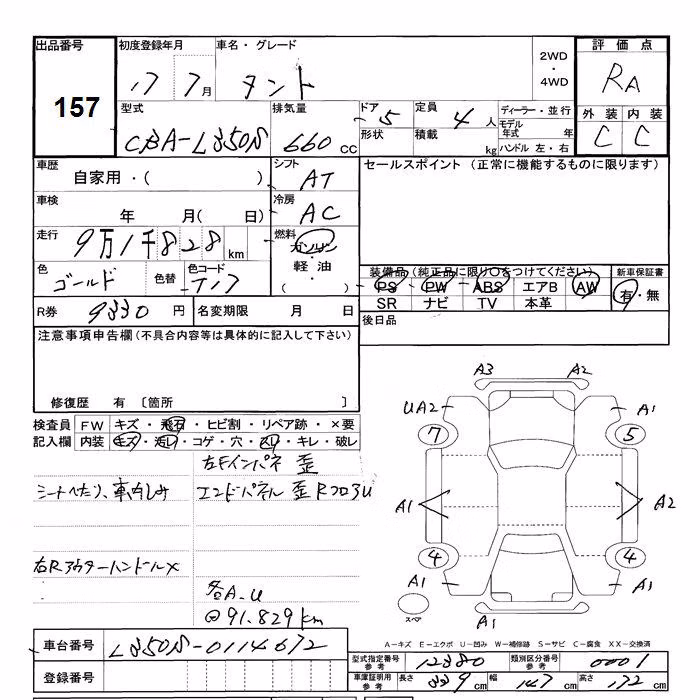 出品番号 初度登録年月 車名・グレード 2WD・4WD 評価点
157 17年 7月 タント RA
型式 排気量 ドア 定員 ディーラー・並行 外装 内装
CBA-L350S 660cc 5 4人 モデル年式 年 C C
形状 積載 kg ハンドル 左・右
車歴 シフト セールスポイント (正常に機能するものに限ります)
自家用・( ) AT
車検 冷房
年 月( 日) AC
走行 燃料
9万1千828km ガソリン
軽油
( ・ )
色 色替 色コード 装備品(純正品に限り○をつけてください) 新車保証書
ゴールド T17 PS PW ABS エアB AW 有・無
SR ナビ TV 本革
R券 9330円 名変期限 月 日 後日品
注意事項申告欄(不具合内容等は具体的に記入して下さい)
修復歴 有 〔箇所 〕
検査員 FW キズ・飛石・ヒビ割・リペア跡・×要
記入欄 内装 キズ・汚レ・コゲ・穴・スレ・キレ・破レ
左Fインパネ 歪
シートへたり、 エンドパネル 歪 RフロアU
右Rアウターハンドル×
各A.U
@91.829km
A3 A2
UA2 A1
7 5
A1 A2
4 4
A1 A1
スペア A1
A-キズ E-エクボ U-凹み W-補修跡 S-サビ C-腐食 XX-交換済
車台番号 L350S-0114672 型式指定番号 参考 12380 類別区分番号 参考 0001
登録番号 車庫証明用 参考 長さ 339cm 幅 147cm 高さ 172cm